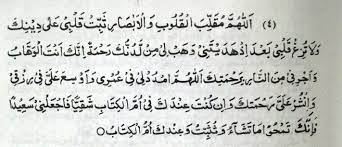 (٤) اَللّٰهُمَّ مُقَلِّبَ الْقُلُوْبِ وَالْاَبْصَارِ ثَبِّتْ قَلْبِيْ عَلٰى دِيْنِكَ
وَلَا تُزِغْ قَلْبِيْ بَعْدَ اِذْ هَدَيْتَنِيْ وَهَبْ لِيْ مِنْ لَّدُنْكَ رَحْمَةً اِنَّكَ اَنْتَ الْوَهَّابُ
وَاَجِرْنِيْ مِنَ النَّارِ بِرَحْمَتِكَ اَللّٰهُمَّ امْدُدْ لِيْ فِيْ عُمُرِيْ وَاَوْسِعْ عَلَيَّ فِيْ رِزْقِيْ
وَانْشُرْ عَلَيَّ رَحْمَتَكَ وَاِنْ كُنْتُ عِنْدَكَ فِيْ اُمِّ الْكِتَابِ شَقِيًّا فَاجْعَلْنِيْ سَعِيْدًا
فَاِنَّكَ تَمْحُوْ مَا تَشَآءُ وَتُثْبِتُ وَعِنْدَكَ اُمُّ الْكِتَابِ ○